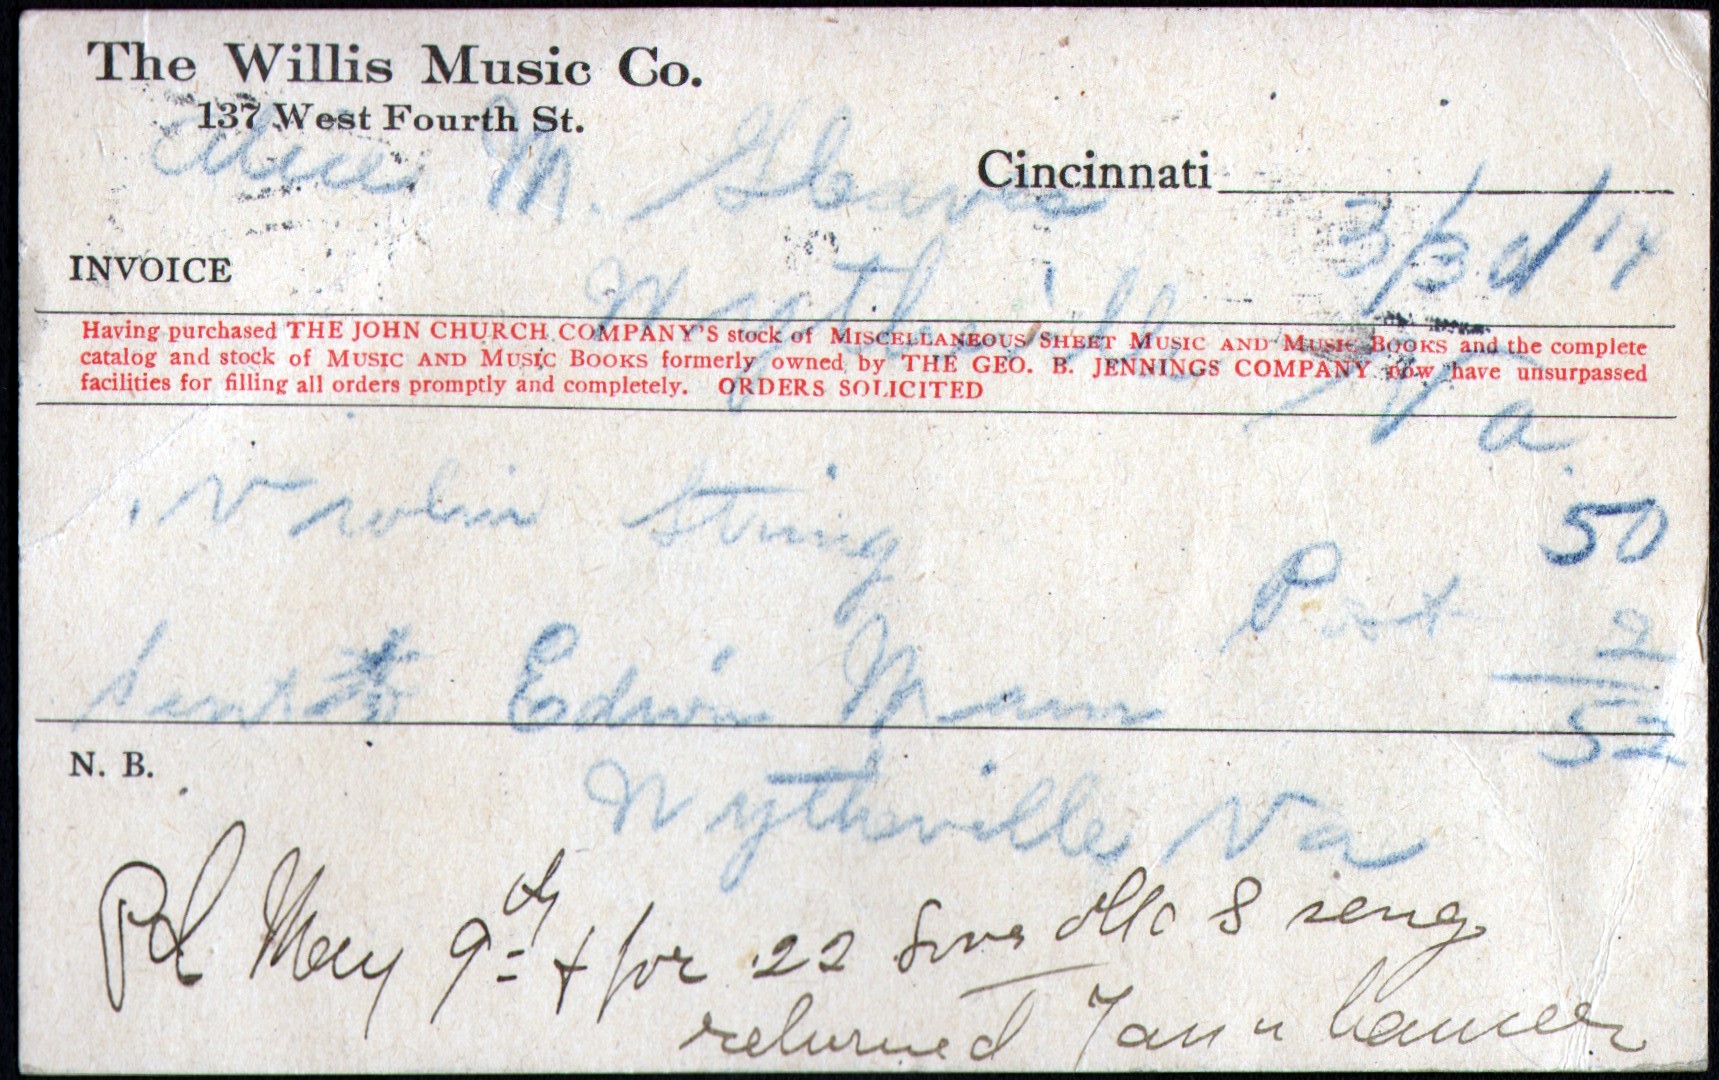 The Willis Music Co.
137 West Fourth St.
M. Gleaves
Cincinnati 3/30/'14
INVOICE
Wytheville
Having purchased THE JOHN CHURCH COMPANY'S stock of MISCELLANEOUS SHEET MUSIC AND MUSIC BOOKS and the complete
catalog and stock of MUSIC AND MUSIC BOOKS formerly owned by THE GEO. B. JENNINGS COMPANY now have unsurpassed
facilities for filling all orders promptly and completely. ORDERS SOLICITED
Va
1 Violin String 50
Post 2
Sent to Edwin Mann 52
N. B.
Wytheville Va
Pd May 9th + for 22 8 song
returned